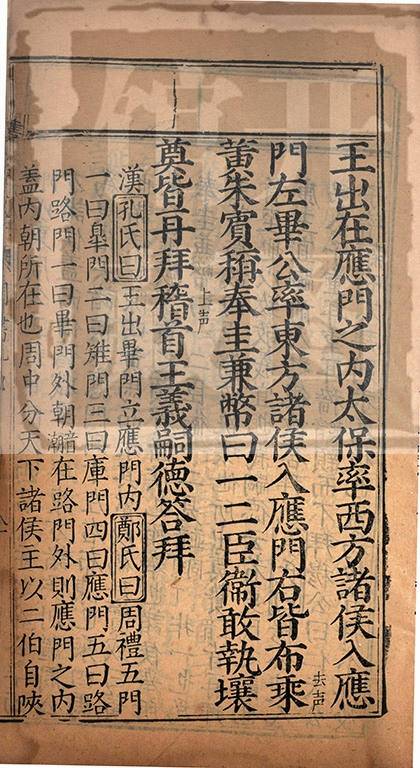 王出在應門之内太保率西方諸侯入應
門左畢公率東方諸侯入應門右皆布乘去声
黄朱賓稱奉圭兼幣曰一二臣衞敢執壤上声
奠皆再拜稽首王義嗣德答拜
漢孔氏曰王出畢門立應門内鄭氏曰周禮五門
一曰臯門二曰雉門三曰庫門四曰應門五曰路
門路門一曰畢門外朝在路門外則應門之内
蓋内朝所在也周中分天下諸侯王以二伯自陝